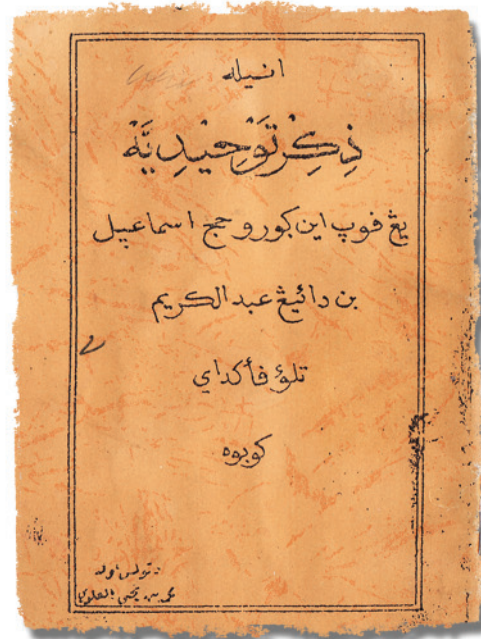 انيله
ذِكِرْ تَوْحِيْدِيَّهْ
يڠ فوپ اين كورو حج اسماعيل
بن دائيڠ عبد الكريم
تلوٴ فأكداي
كوبوه
دتولس اوله
بن يحيى العلوي